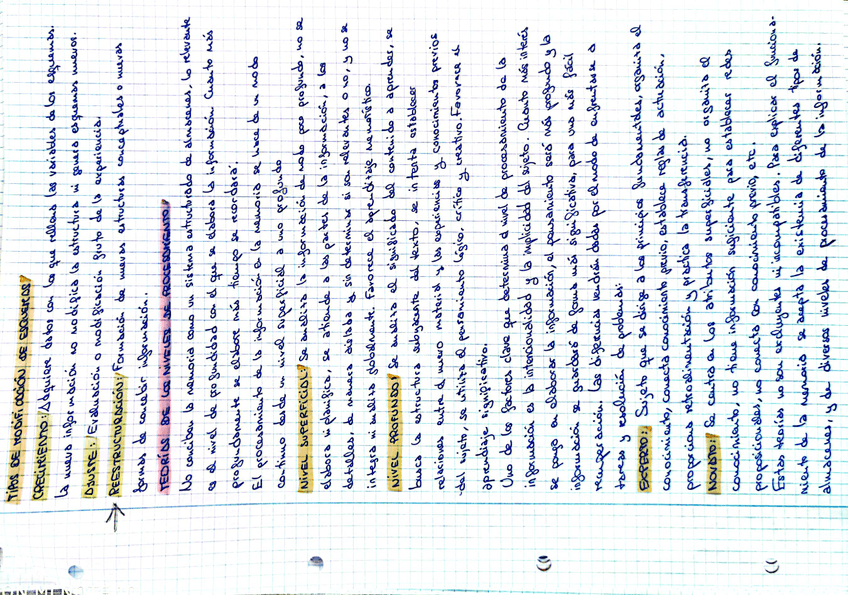 TIPOS DE MODIFICACIÓN DE ESQUEMAS
CRECIMIENTO: Adquiere datos con los que rellena las variables de los esquemas.
La nueva información no modifica la estructura ni genera esquemas nuevos.
AJUSTE: Evaluación o modificación fruto de la experiencia.
REESTRUCTURACIÓN: Formación de nuevas estructuras conceptuales o nuevas
formas de concebir información.
TEORÍAS DE LOS NIVELES DE PROCESAMIENTO
No conciben la memoria como un sistema estructurado de almacenes, lo relevante
es el nivel de profundidad con el que se elabora la información. Cuanto más
profundamente se elabore más tiempo se recordará.
El procesamiento de la información en la memoria se hace de un modo
continuo desde un nivel superficial a uno profundo
NIVEL SUPERFICIAL: Se analiza la información de modo poco profundo, no se
elabora ni planifica, se atiende a las partes de la información, a los
detalles de manera aislada y sin determinar si son relevantes o no, y no se
integra ni analiza globalmente. Favorece el aprendizaje memorístico
NIVEL PROFUNDO: Se analiza el significado del contenido a aprender, se
busca la estructura subyacente del texto, se intenta establecer
relaciones entre el nuevo material y las experiencias y conocimientos previos
del sujeto, se utiliza el pensamiento lógico, crítico y creativo. Favorece el
aprendizaje significativo.
Uno de los factores clave que determina el nivel de procesamiento de la
información es la intencionalidad y la implicidad del sujeto. Cuanto más interés
se ponga en elaborar la información, el pensamiento será más profundo y la
información se guardará de forma más significativa, para una más fácil
recuperación. Las diferencias vendrán dadas por el modo de enfrentarse a
tareas y resolución de problemas:
EXPERTO: Sujeto que se dirige a los principios fundamentales, organiza el
conocimiento, conecta conocimiento previo, establece reglas de actuación,
proporciona retroalimentación y practica la transferencia.
NOVATO: Se centra en los atributos superficiales, no organiza el
conocimiento, no tiene información suficiente para establecer redes
proposicionales, no conecta con conocimiento previo, etc.
Estas teorías no son excluyentes ni incompatibles. Para explicar el funciona-
miento de la memoria se acepta la existencia de diferentes tipos de
almacenes, y de diversos niveles de procesamiento de la información.